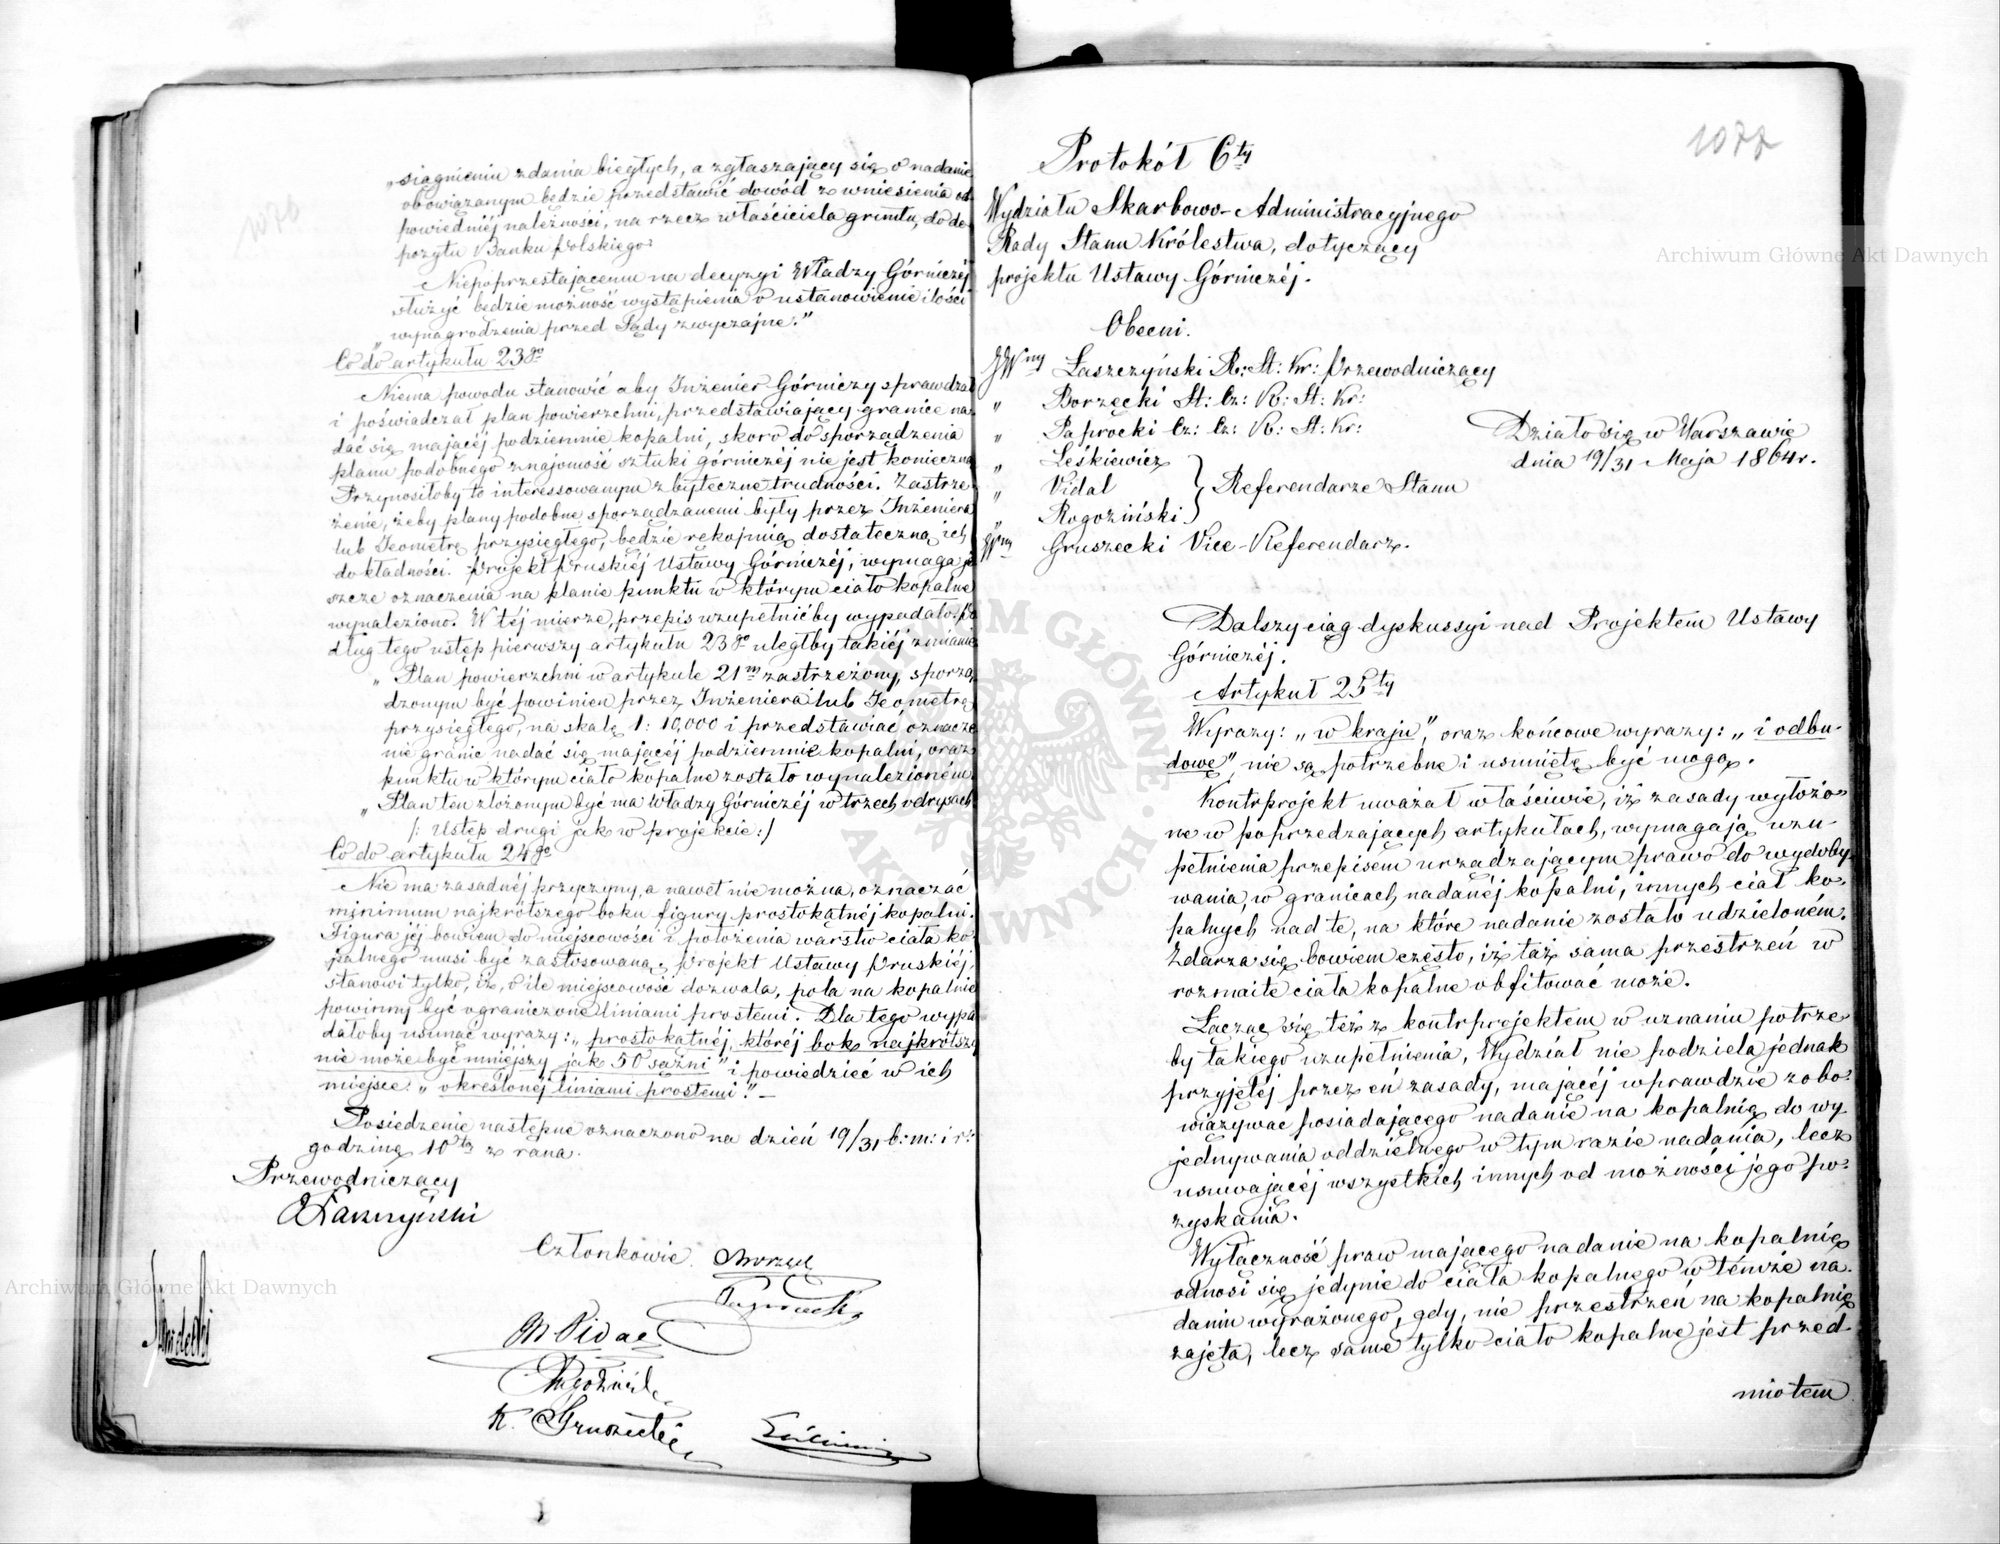 „siągnieniu zdania biegłych, a zgłaszający się o nadanie
obowiązanym będzie przedstawić dowód z wniesienia od-
powiedniéj należności, na rzecz właściciela gruntu, do de-
pozytu Banku Polskiego.
Niepoprzestającemu na decyzyi Władzy Górniczéj
służyć będzie możność wystąpienia o ustanowienie ilości
„wynagrodzenia przed Sądy zwyczajne.”
Co do artykułu 23go
Niema powodu stanowić aby Inżenier Górniczy sprawdzał
i poświadczał plan powierzchni, przedstawiający granice na-
dać się mającéj podziemnie kopalni, skoro do sporządzenia
planu podobnego znajomość sztuki górniczéj nie jest konieczną
Przynosiłoby to interessowanym zbyteczne trudności. Zastrze-
żenie, żeby plany podobne sporządzanemi były przez Inżeniera
lub Geometrę przysięgłego, będzie rękojmią dostateczną ich
dokładności. Projekt Pruskiéj Ustawy Górniczéj, wymaga je-
szcze oznaczenia na planie punktu w którym ciało kopalne
wynaleziono. W téj mierze, przepis uzupełnićby wypadało, po
dług tego ustęp pierwszy artykułu 23go uległby takiéj zmianie
„Plan powierzchni w artykule 21m zastrzeżony, sporzą
dzonym być powinien przez Inżeniera lub Geometrę
przysięgłego, na skalę 1: 10,000 i przedstawiać oznacze
nie granic nadać się mającéj podziemnie kopalni, oraz
punktu w którym ciało kopalne zostało wynalezioném.
„Plan ten złożonym być ma Władzy Górniczéj w trzech odrysach
/: Ustęp drugi jak w projekcie :/
Co do artykułu 24go
Nie ma zasadnéj przyczyny, a nawet nie można, oznaczać
minimum najkrótszego boku figury prostokątnéj kopalni.
Figura jéj bowiem do miejscowości i położenia warstw ciała ko-
palnego musi być zastosowaną. Projekt Ustawy Pruskiéj,
stanowi tylko, iż, o ile miejscowość dozwala, pola na kopalnie
powinny być ograniczone liniami prostemi. Dla tego wypa
dałoby usunąć wyrazy: „prostokątnéj, któréj bok najkrótszy
nie może być mniejszy jak 50 sążni” i powiedzieć w ich
miejsce: „określonéj liniami prostemi”. —
Posiedzenie następne oznaczono na dzień 19/31 b: m: i r:
godzinę 10tą z rana.
Przewodniczący
Łaszczyński
Członkowie.
M Vidal
Rogoziński
K. Gruszecki
1077
Protokół 6ty
Wydziału Skarbowo-Administracyjnego
Rady Stanu Królestwa, dotyczący
projektu Ustawy Górniczéj.
Obecni.
JWny Łaszczyński R: St: Kr: Przewodniczący
„ Borzęcki St: Cz: R: St: Kr:
„ Paprocki Cz: Cz: R: St: Kr:
Działo się w Warszawie
dnia 19/31 Maja 1864 r.
„ Leśkiewicz
„ Vidal } Referendarze Stanu
„ Rogoziński
Gruszecki Vice-Referendarz.
Dalszy ciąg dyskussyi nad Projektem Ustawy
Górniczéj.
Artykuł 25ty
Wyrazy: „w kraju”, oraz końcowe wyrazy: „i odbu-
dowę”, nie są potrzebne i usunięte być mogą.
Kontrprojekt uważał właściwie, iż zasady wyłożo-
ne w poprzedzających artykułach, wymagają uzu-
pełnienia przepisem urządzającym prawo do wydoby-
wania, w granicach nadanéj kopalni, innych ciał ko-
palnych nad te, na które nadanie zostało udzieloném.
Zdarza się bowiem często, iż taż sama przestrzeń w
rozmaite ciała kopalne obfitować może.
Łącząc się też z kontrprojektem w uznaniu potrze-
by takiego uzupełnienia, Wydział nie podziela jednak
przyjętéj przezeń zasady, mającéj wprawdzie zobo-
wiązywać posiadającego nadanie na kopalnię do wy
jednywania oddzielnego w tym razie nadania, lecz
usuwającéj wszystkich innych od możności jego po-
zyskania.
Wyłączność praw mającego nadanie na kopalnię
odnosi się jedynie do ciała kopalnego w témże na-
daniu wyrażonego, gdy, nie przestrzeń na kopalnię
zajęta, lecz same tylko ciało kopalne jest przed-
miotem
Archiwum Główne Akt Dawnych
Archiwum Główne Akt Dawnych
ARCHIWUM GŁÓWNE AKT DAWNYCH